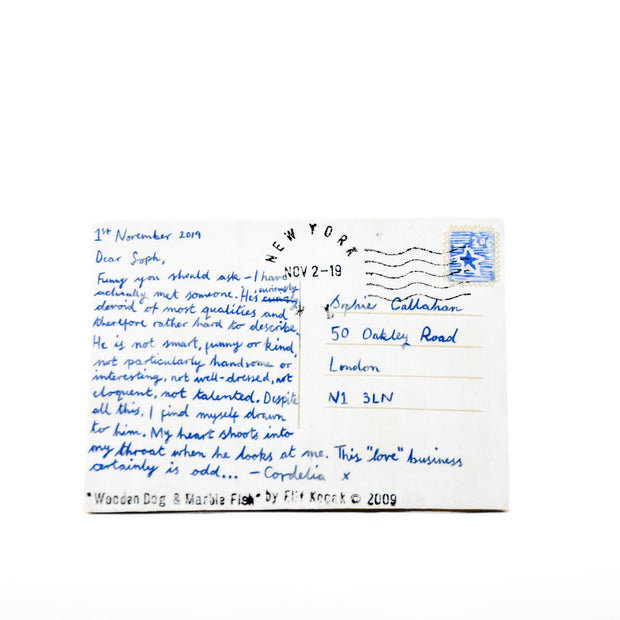 1st November 2019
Dear Soph,
Funny you should ask - I have
actually met someone. He's curiously
devoid of most qualities and
therefore rather hard to describe.
He is not smart, funny or kind,
not particularly handsome or
interesting, not well-dressed, not
eloquent, not talented. Despite
all this, I find myself drawn
to him. My heart shoots into
my throat when he looks at me. This "love" business
certainly is odd... - Cordelia x
NEW YORK
NOV 2-19
Sophie Callahan
50 Oakley Road
London
N1 3LN
"Wooden Dog & Marble Fish" by Elif Kocak © 2009